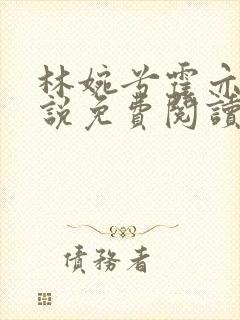 林婉兮霍亦
說免費閱讀
債務者